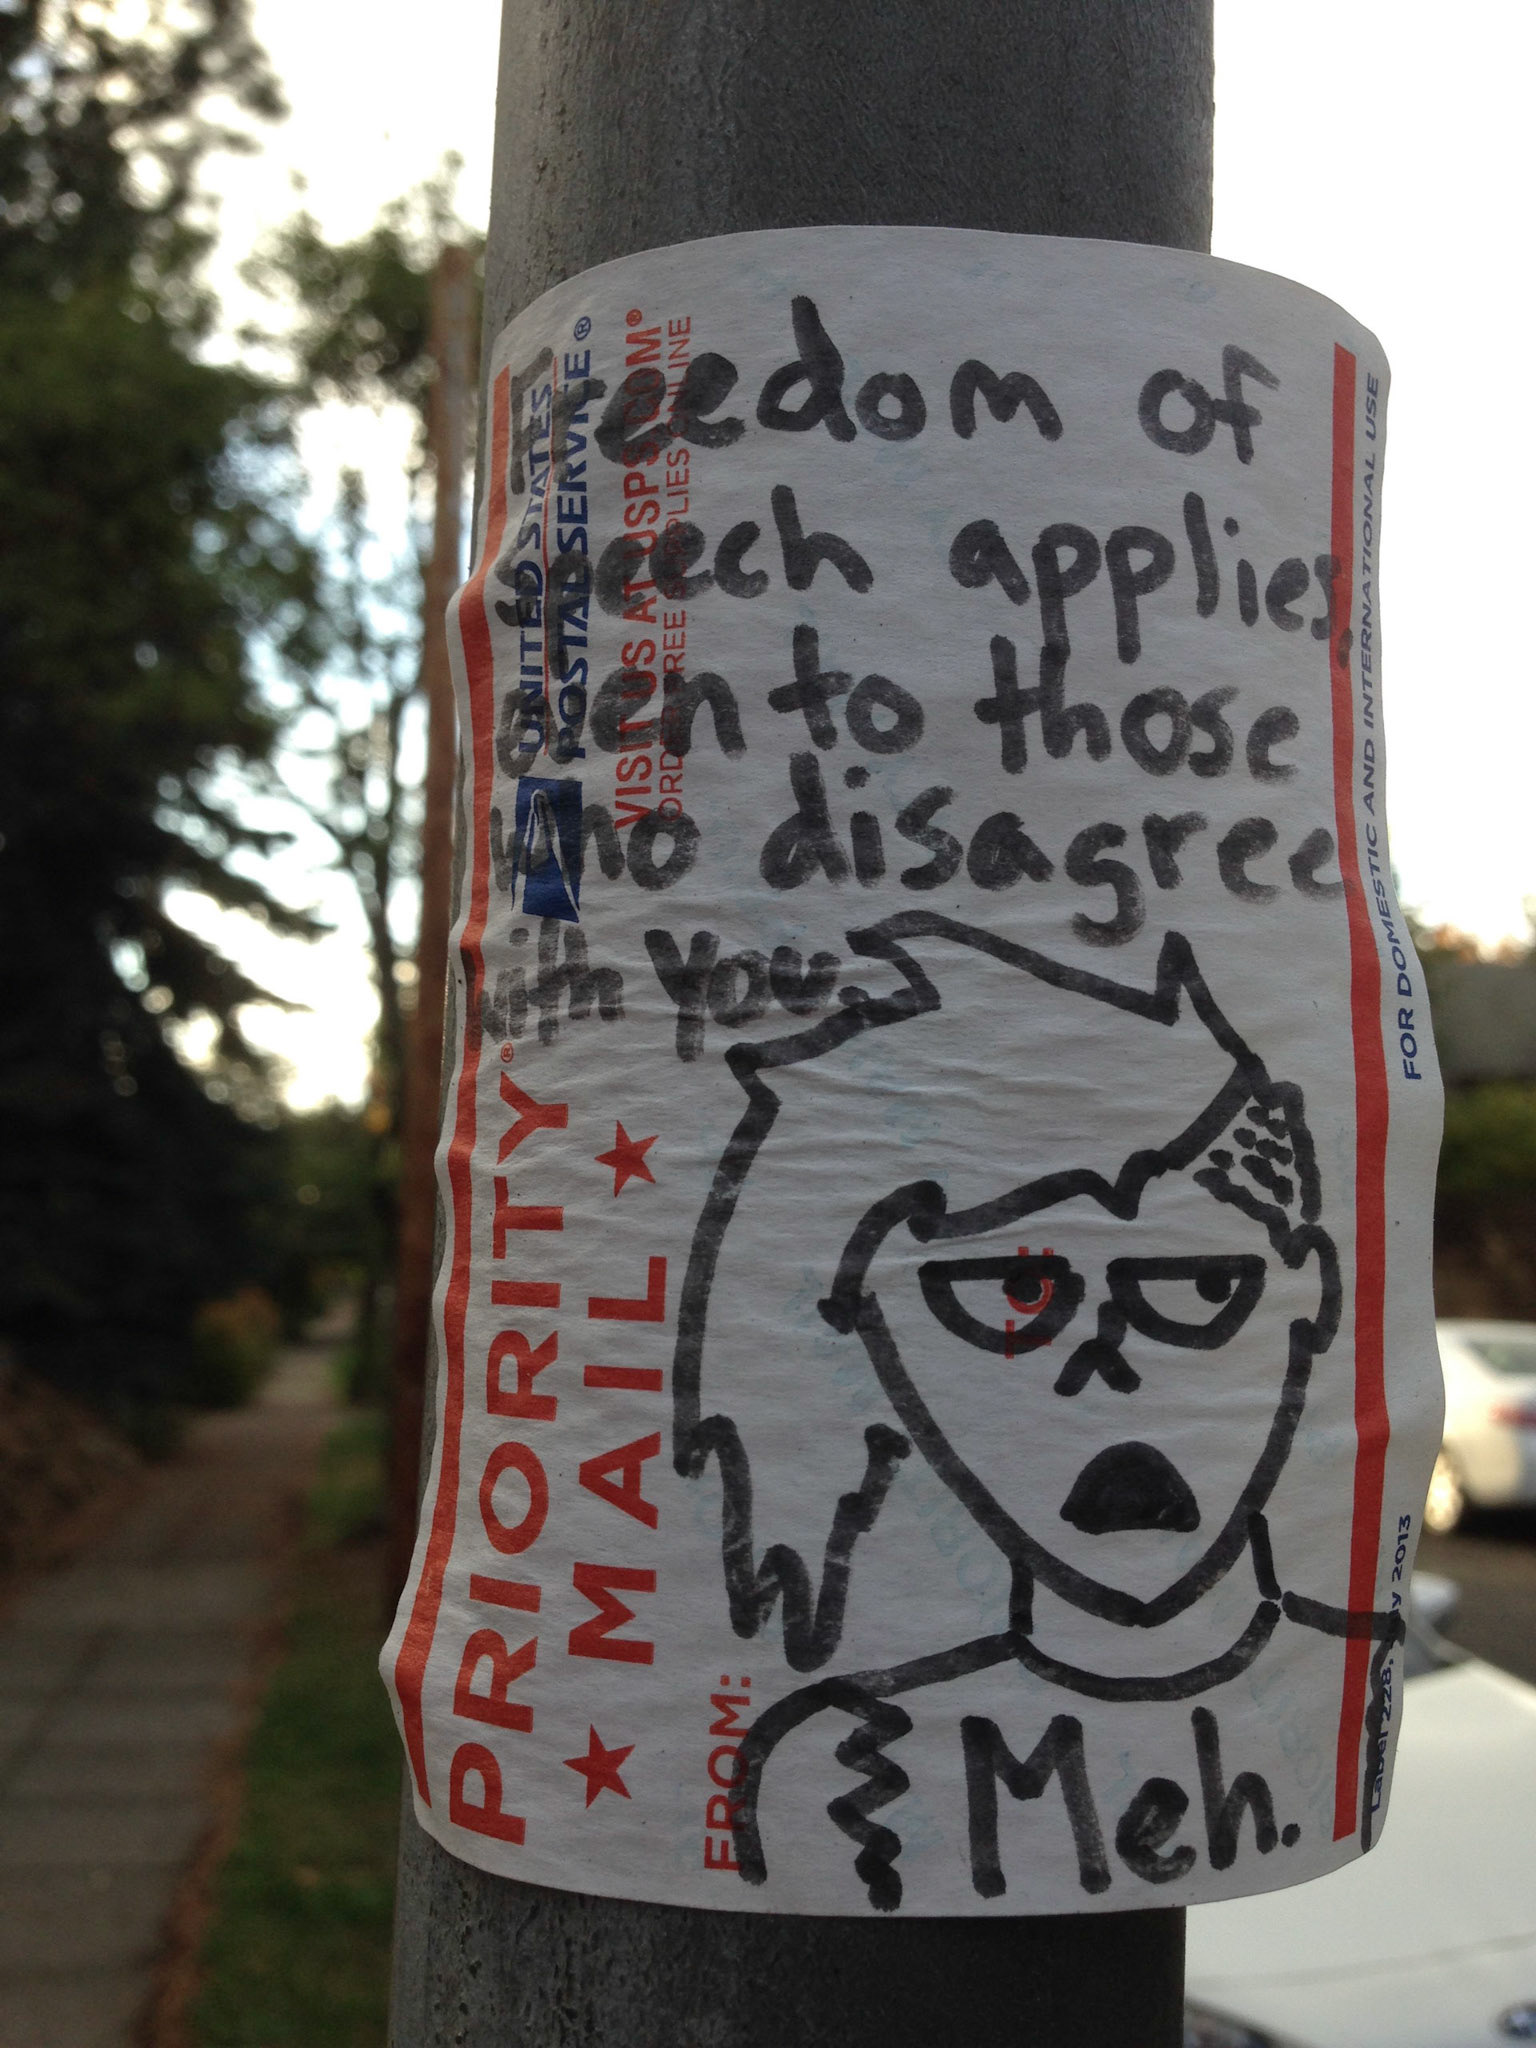 Freedom of
speech applies
even to those
who disagree
with you.
Meh.
UNITED STATES
POSTAL SERVICE®
VISIT US AT USPS.COM®
ORDER FREE SUPPLIES ONLINE
PRIORITY®
★ MAIL ★
FROM:
TO:
Label 228, July 2013
FOR DOMESTIC AND INTERNATIONAL USE